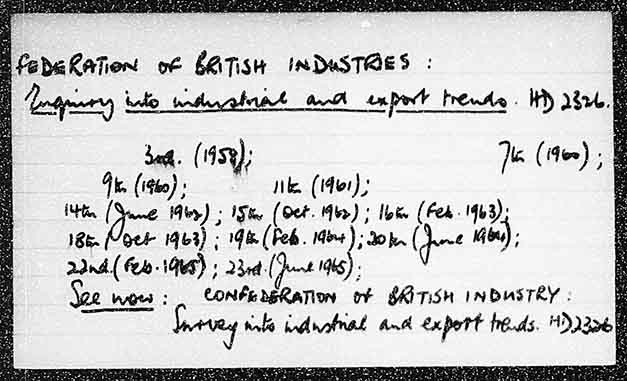 FEDERATION OF BRITISH INDUSTRIES :
Enquiry into industrial and export trends. HD 2326.
3rd. (1958); 7th (1960);
9th (1960); 11th (1961);
14th (June 1962); 15th (Oct. 1962); 16th (Feb. 1963);
18th (Oct 1963); 19th (Feb. 1964); 20th (June 1964);
22nd. (Feb. 1965); 23rd. (June 1965);
See now: CONFEDERATION OF BRITISH INDUSTRY:
Survey into industrial and export trends. HD 2326